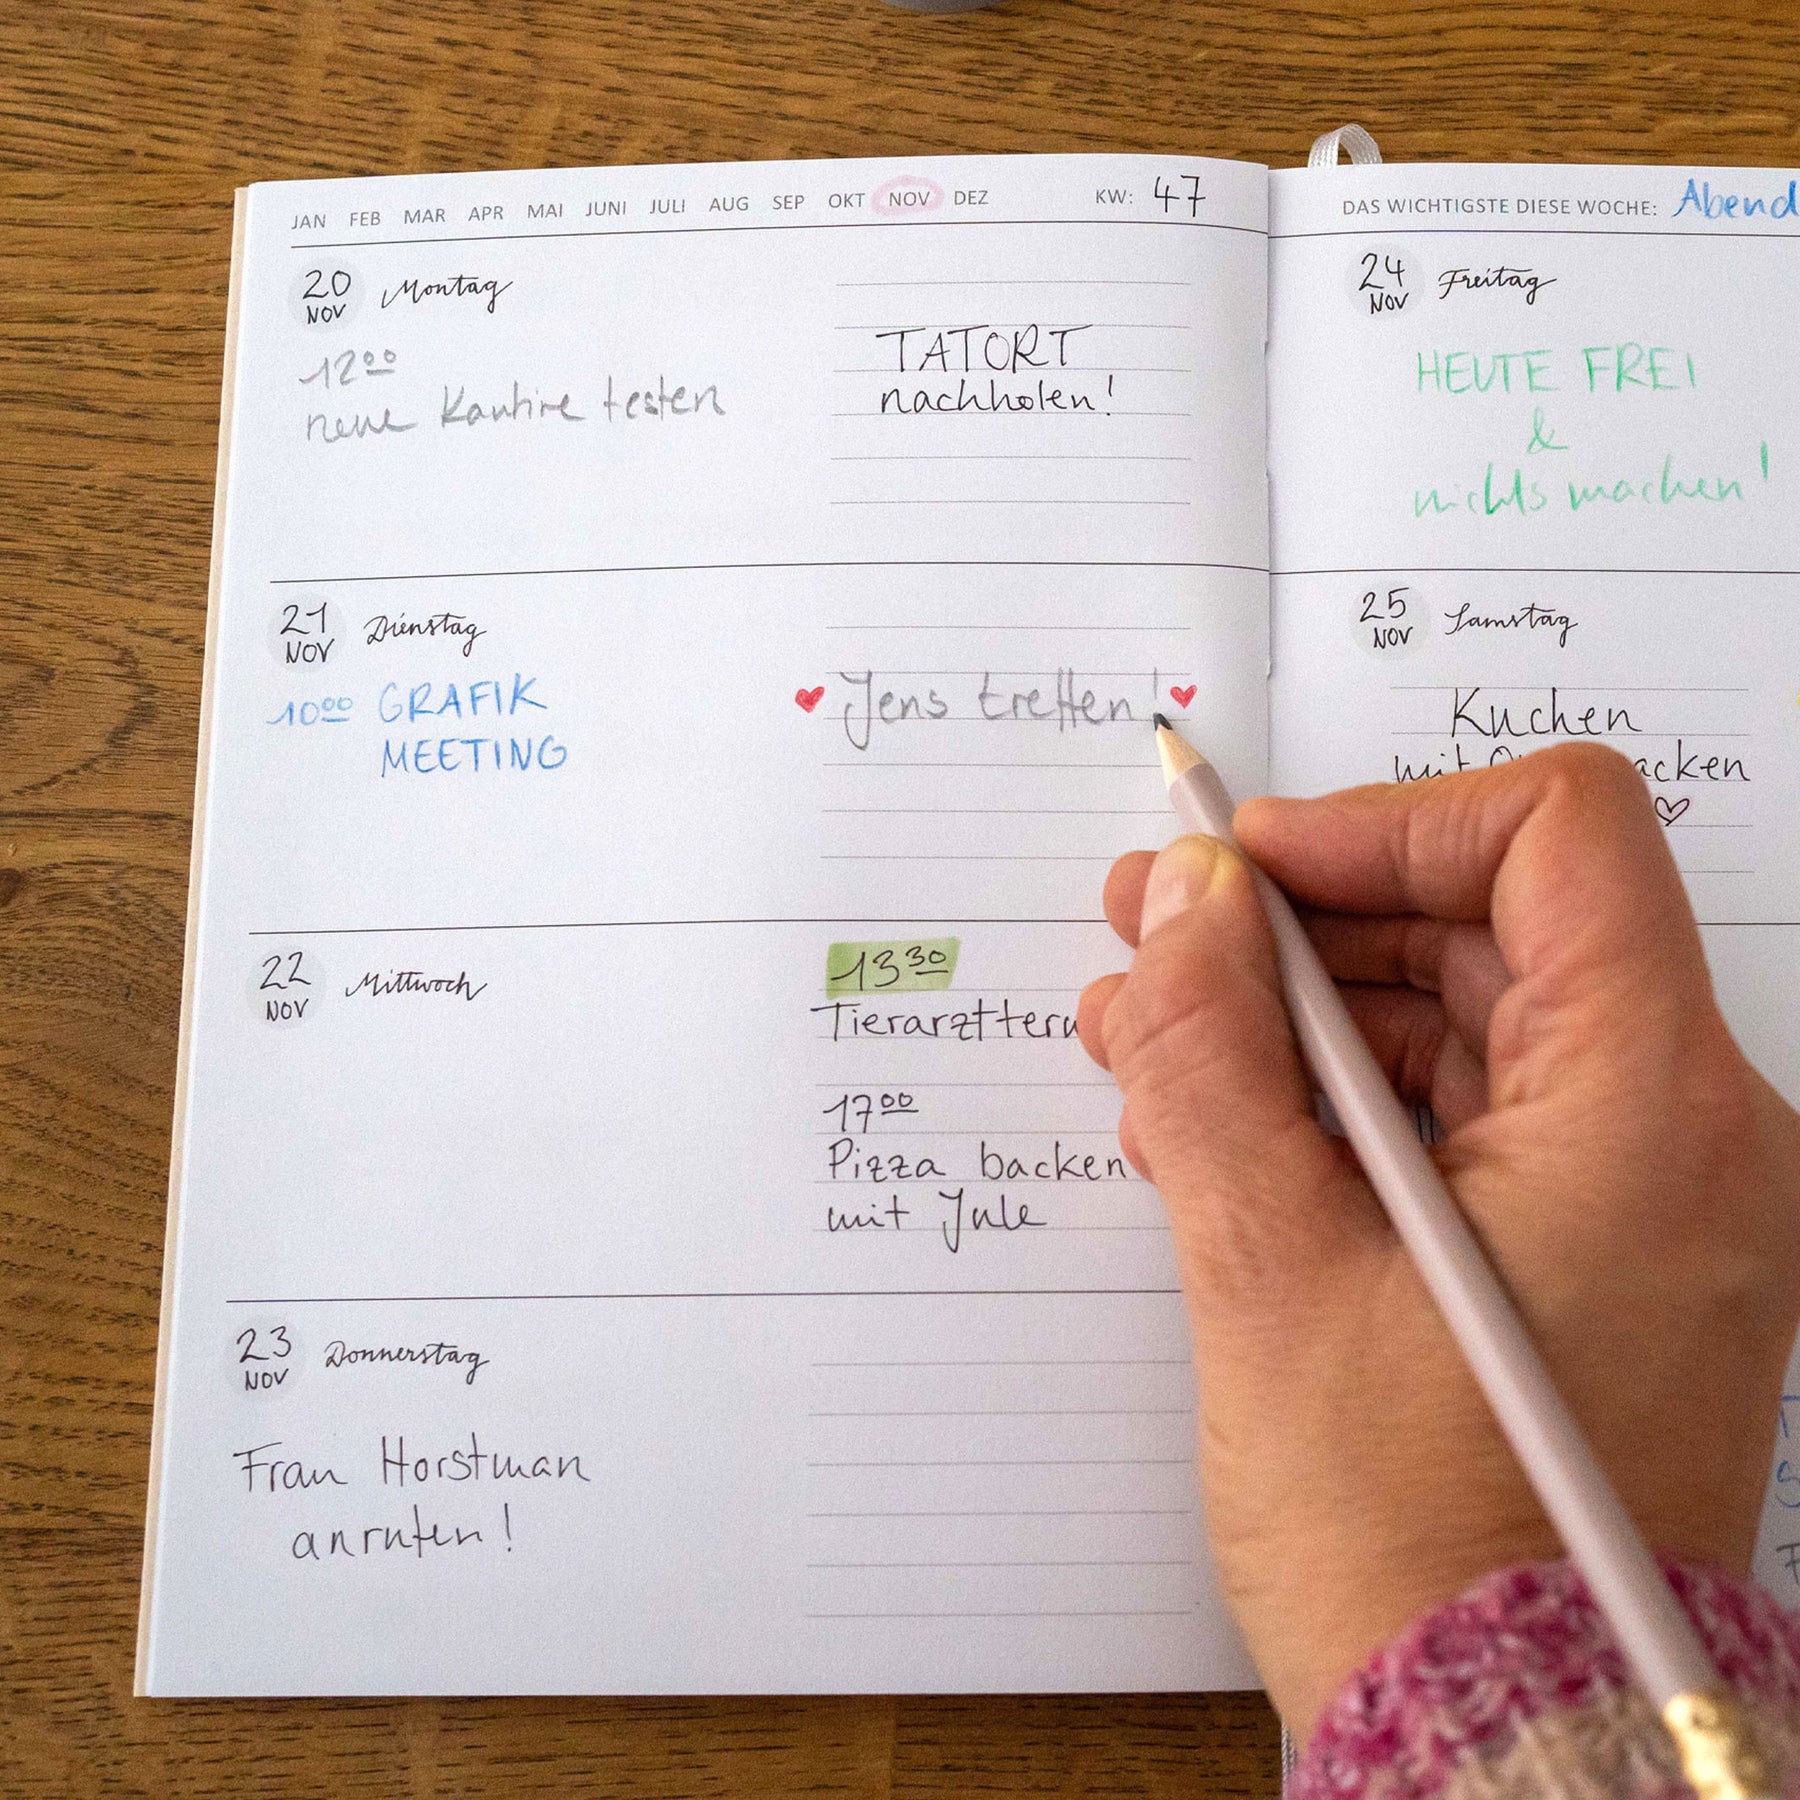 JAN FEB MAR APR MAI JUNI JULI AUG SEP OKT NOV DEZ KW: 47
20 NOV Montag
12⁰⁰
neue Kantine testen
TATORT
nachholen!
21 NOV Dienstag
10⁰⁰ GRAFIK
MEETING
Jens treffen!
22 NOV Mittwoch
13³⁰
17⁰⁰
Pizza backen
mit Jule
23 NOV Donnerstag
Frau Horstman
anrufen!
DAS WICHTIGSTE DIESE WOCHE: Abend
24 NOV Freitag
HEUTE FREI
&
nichts machen!
25 NOV Samstag
Kuchen
mit